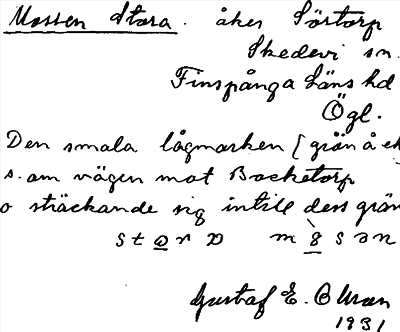 Mossen Stora. åker Sörtorp
Skedevi sn.
Finspånga Läns hd
Ögl.
Den smala lågmarken [grän å ek
s. om vägen mot Backetorp
o sträckande sig intill dess grän
Gustaf E. Olsson
1931